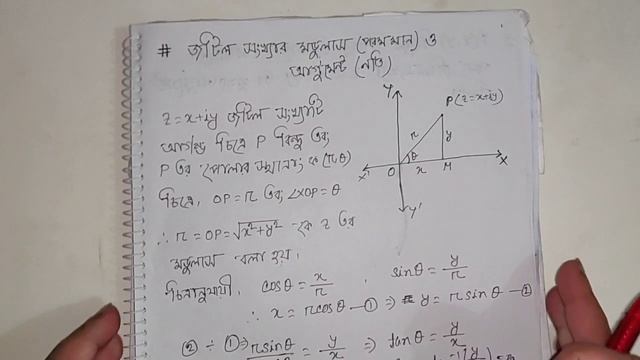 # জটিল সংখ্যার মডুলাস (পরমমান) ও
আর্গুমেন্ট (নতি)
z = x+iy জটিল সংখ্যাটি
আর্গন্ড চিত্রে P বিন্দু এবং
P এর পোলার স্থানাংক (r,θ)
চিত্রে, OP = r এবং ∠XOP = θ
∴ r = OP = √x²+y² কে z এর
মডুলাস বলা হয়।
চিত্রানুযায়ী, cosθ = x/r , sinθ = y/r
∴ x = r cosθ —① ⇒ y = r sinθ —②
② ÷ ① ⇒ r sinθ = y/x ⇒ tanθ = y/x
Y
P(z=x+iy)
r
y
θ
X'
O
x
M
X
Y'